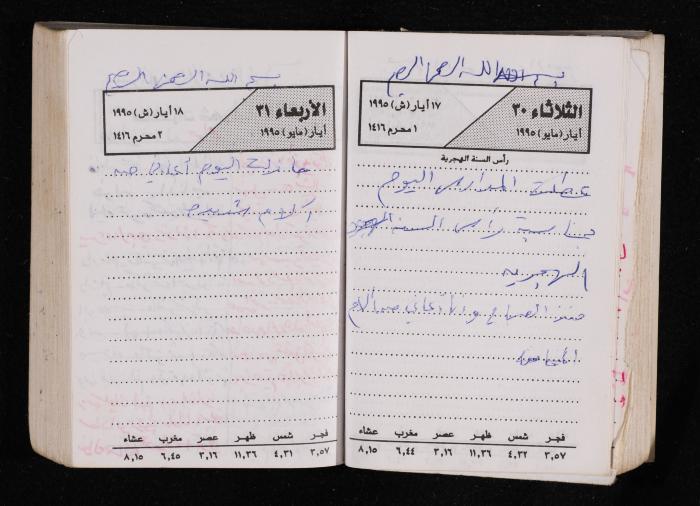 بسم الله الرحمن الرحيم
الثلاثاء ٣٠
أيار (مايو) ١٩٩٥
١٧ أيار (ش) ١٩٩٥
١ محرم ١٤١٦
رأس السنة الهجرية
عطلة المدارس اليوم
بمناسبة رأس السنة
الهجريه
منذ الصباح وأنا أعاني من آلام
فجر شمس ظهر عصر مغرب عشاء
٣,٥٧ ٤,٣٢ ١١,٣٦ ٣,١٦ ٦,٤٤ ٨,١٥
بسم الله الرحمن الرحيم
الأربعاء ٣١
أيار (مايو) ١٩٩٥
١٨ أيار (ش) ١٩٩٥
٢ محرم ١٤١٦
ما زلت اليوم أعاني من
آلام شديده
فجر شمس ظهر عصر مغرب عشاء
٣,٥٧ ٤,٣١ ١١,٣٦ ٣,١٦ ٦,٤٥ ٨,١٥